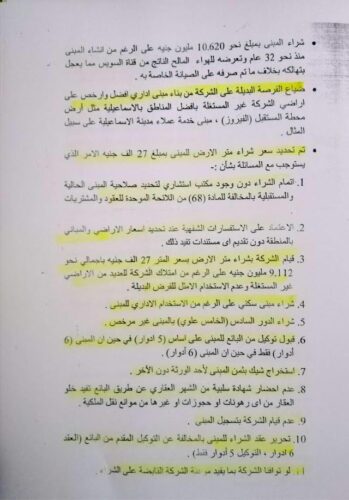 • شراء المبنى بمبلغ نحو 10.620 مليون جنيه على الرغم من انشاء المبنى
منذ نحو 32 عام وتعرضه للهواء المالح الناتج من قناة السويس مما يعجل
بتهالكه بخلاف ما تم صرفه على الصيانة الخاصة به .
• ضياع الفرصة البديلة على الشركة من بناء مبنى اداري افضل وارخص على
اراضي الشركة غير المستغلة بافضل المناطق بالاسماعيلية مثل أرض
محطة المستقبل (الفيروز) ، مبنى خدمة عملاء مدينة الاسماعيلية على سبيل
المثال .
• تم تحديد سعر شراء متر الارض للمبنى بمبلغ 27 الف جنيه الامر الذي
يستوجب مع المسائلة بشأن:-
1. اتمام الشراء دون وجود مكتب استشاري لتحديد صلاحية المبنى الحالية
والمستقبلية بالمخالفة للمادة (68) من اللائحة الموحدة للعقود والمشتريات
.
2. الاعتماد على الاستفسارات الشفهية عند تحديد اسعار الاراضي والمباني
بالمنطقة دون تقديم اى مستندات تفيد ذلك .
3. قيام الشركة بشراء متر الارض بسعر المتر 27 الف جنيه باجمالي نحو
9.112 مليون جنيه على الرغم من امتلاك الشركة للعديد من الاراضي
غير المستغلة وعدم الاستخدام الامثل للفرص البديلة .
4. شراء مبنى سكني على الرغم من الاستخدام الاداري للمبنى .
5. شراء الدور السادس (الخامس علوي) بالمبنى غير مرخص .
6. قبول توكيل من البائع للمبنى على اساس (5 ادوار) في حين ان المبنى (6
أدوار) فقط في حين ان المبنى (6 أدوار) .
7. استخراج شيك بثمن المبنى لأحد الورثة دون الآخر .
8. عدم احضار شهادة سلبية من الشهر العقاري عن طريق البائع تفيد خلو
العقار من اى رهونات او حجوزات او غيرها من موانع نقل الملكية .
9. عدم قيام الشركة بتسجيل المبنى .
10. تحرير عقد الشراء للمبنى بالمخالفة عن التوكيل المقدم من البائع (العقد
6 ادوار ، التوكيل 5 أدوار فقط) .
لم توافنا الشركة بما يفيد موافقة الشركة القابضة على الشراء